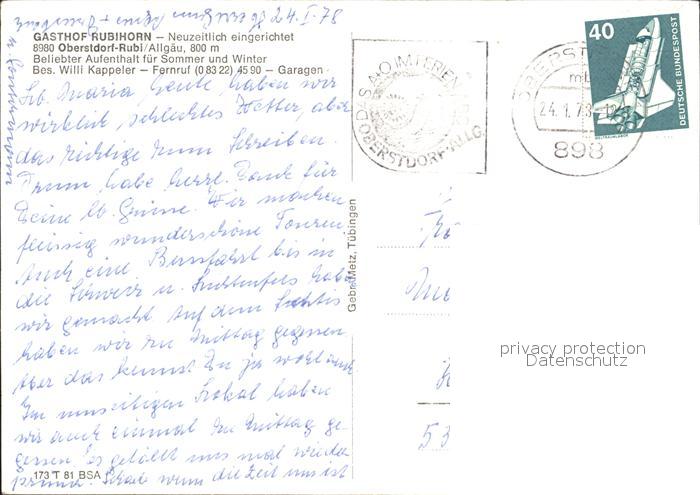 24.I.78
GASTHOF RUBIHORN – Neuzeitlich eingerichtet
8980 Oberstdorf-Rubi/Allgäu, 800 m
Beliebter Aufenthalt für Sommer und Winter
Bes. Willi Kappeler – Fernruf (0 83 22) 45 90 – Garagen
Lb. Maria, heute haben wir
wirklich schlechtes Wetter, aber
das richtige zum Schreiben.
Drum habe herzl. Dank für
Deine lb. Grüsse. Wir machen
fleissig wunderschöne Touren.
Auch eine Busfahrt bis in
die Schweiz u. haben
wir gemacht auf dem Säntis
haben wir zu Mittag gegessen
Aber das kennst Du ja wohl auch
Im umseitigen Lokal haben
wir auch einmal zu Mittag ge-
gessen Es gefällt uns mal wieder
prima. Schade wenn die Zeit um ist
173 T 81 BSA
Gebr. Metz, Tübingen
DAS A-O IM FERIEN
OBERSTDORF-ALLG.
OBERSTD
24.1.78-12
898
40
DEUTSCHE BUNDESPOST
WELTRAUMLABOR
53
privacy protection
Datenschutz